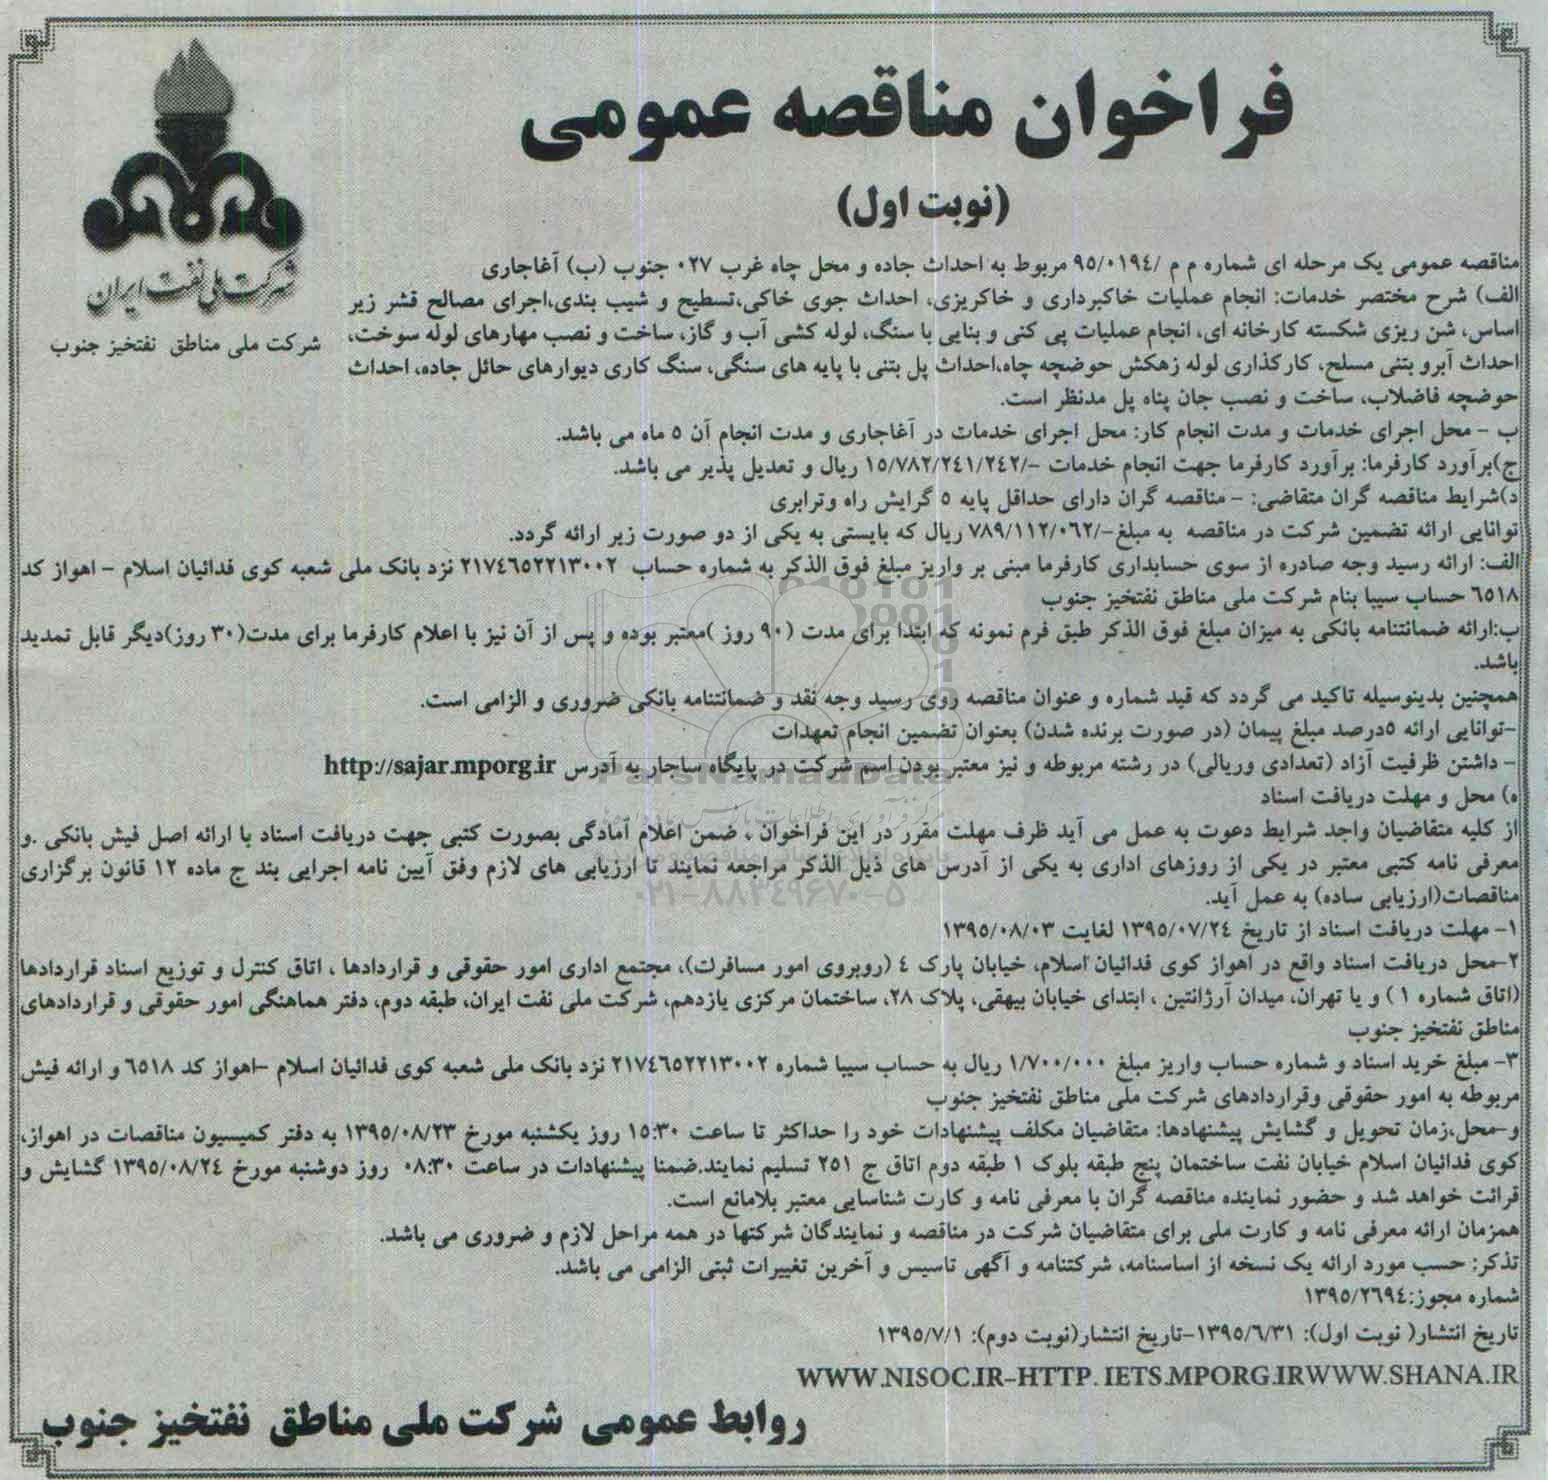 فراخوان مناقصه عمومی
(نوبت اول)
شرکت ملی نفت ایران
شرکت ملی مناطق نفتخیز جنوب
مناقصه عمومی یک مرحله ای شماره م م /۹۵/۰۱۹٤ مربوط به احداث جاده و محل چاه غرب ۰۲۷ جنوب (ب) آغاجاری
الف) شرح مختصر خدمات: انجام عملیات خاکبرداری و خاکریزی، احداث جوی خاکی،تسطیح و شیب بندی،اجرای مصالح قشر زیر
اساس، شن ریزی شکسته کارخانه ای، انجام عملیات پی کنی و بنایی با سنگ، لوله کشی آب و گاز، ساخت و نصب مهارهای لوله سوخت،
احداث آبرو بتنی مسلح، کارگذاری لوله زهکش حوضچه چاه،احداث پل بتنی با پایه های سنگی، سنگ کاری دیوارهای حائل جاده، احداث
حوضچه فاضلاب، ساخت و نصب جان پناه پل مدنظر است.
ب - محل اجرای خدمات و مدت انجام کار: محل اجرای خدمات در آغاجاری و مدت انجام آن ۵ ماه می باشد.
ج)برآورد کارفرما: برآورد کارفرما جهت انجام خدمات -/۱۵/۷۸۲/۲٤۱/۲٤۲ ریال و تعدیل پذیر می باشد.
د)شرایط مناقصه گران متقاضی: - مناقصه گران دارای حداقل پایه ۵ گرایش راه وترابری
توانایی ارائه تضمین شرکت در مناقصه به مبلغ-/۷۸۹/۱۱۲/۰٦۲ ریال که بایستی به یکی از دو صورت زیر ارائه گردد.
الف: ارائه رسید وجه صادره از سوی حسابداری کارفرما مبنی بر واریز مبلغ فوق الذکر به شماره حساب ۲۱۷٤٦۵۲۲۱۳۰۰۲ نزد بانک ملی شعبه کوی فدائیان اسلام - اهواز کد
٦۵۱۸ حساب سیبا بنام شرکت ملی مناطق نفتخیز جنوب
ب:ارائه ضمانتنامه بانکی به میزان مبلغ فوق الذکر طبق فرم نمونه که ابتدا برای مدت (۹۰ روز )معتبر بوده و پس از آن نیز با اعلام کارفرما برای مدت(۳۰ روز)دیگر قابل تمدید
باشد.
همچنین بدینوسیله تاکید می گردد که قید شماره و عنوان مناقصه روی رسید وجه نقد و ضمانتنامه بانکی ضروری و الزامی است.
-توانایی ارائه ۵درصد مبلغ پیمان (در صورت برنده شدن) بعنوان تضمین انجام تعهدات
- داشتن ظرفیت آزاد (تعدادی وریالی) در رشته مربوطه و نیز معتبر بودن اسم شرکت در پایگاه ساجار به آدرس http://sajar.mporg.ir
ه) محل و مهلت دریافت اسناد
از کلیه متقاضیان واجد شرایط دعوت به عمل می آید ظرف مهلت مقرر در این فراخوان ، ضمن اعلام آمادگی بصورت کتبی جهت دریافت اسناد با ارائه اصل فیش بانکی .و
معرفی نامه کتبی معتبر در یکی از روزهای اداری به یکی از آدرس های ذیل الذکر مراجعه نمایند تا ارزیابی های لازم وفق آیین نامه اجرایی بند ج ماده ۱۲ قانون برگزاری
مناقصات(ارزیابی ساده) به عمل آید.
۱- مهلت دریافت اسناد از تاریخ ۱۳۹۵/۰۷/۲٤ لغایت ۱۳۹۵/۰۸/۰۳
۲-محل دریافت اسناد واقع در اهواز کوی فدائیان اسلام، خیابان پارک ٤ (روبروی امور مسافرت)، مجتمع اداری امور حقوقی و قراردادها ، اتاق کنترل و توزیع اسناد قراردادها
(اتاق شماره ۱ ) و یا تهران، میدان آرژانتین ، ابتدای خیابان بیهقی، پلاک ۲۸، ساختمان مرکزی یازدهم، شرکت ملی نفت ایران، طبقه دوم، دفتر هماهنگی امور حقوقی و قراردادهای
مناطق نفتخیز جنوب
۳- مبلغ خرید اسناد و شماره حساب واریز مبلغ ۱/۷۰۰/۰۰۰ ریال به حساب سیبا شماره ۲۱۷٤٦۵۲۲۱۳۰۰۲ نزد بانک ملی شعبه کوی فدائیان اسلام -اهواز کد ٦۵۱۸ و ارائه فیش
مربوطه به امور حقوقی وقراردادهای شرکت ملی مناطق نفتخیز جنوب
و-محل،زمان تحویل و گشایش پیشنهادها: متقاضیان مکلف پیشنهادات خود را حداکثر تا ساعت ۱۵:۳۰ روز یکشنبه مورخ ۱۳۹۵/۰۸/۲۳ به دفتر کمیسیون مناقصات در اهواز،
کوی فدائیان اسلام خیابان نفت ساختمان پنج طبقه بلوک ۱ طبقه دوم اتاق ج ۲۵۱ تسلیم نمایند.ضمنا پیشنهادات در ساعت ۰۸:۳۰ روز دوشنبه مورخ ۱۳۹۵/۰۸/۲٤ گشایش و
قرائت خواهد شد و حضور نماینده مناقصه گران با معرفی نامه و کارت شناسایی معتبر بلامانع است.
همزمان ارائه معرفی نامه و کارت ملی برای متقاضیان شرکت در مناقصه و نمایندگان شرکتها در همه مراحل لازم و ضروری می باشد.
تذکر: حسب مورد ارائه یک نسخه از اساسنامه، شرکتنامه و آگهی تاسیس و آخرین تغییرات ثبتی الزامی می باشد.
شماره مجوز:۱۳۹۵/۲٦۹٤
تاریخ انتشار( نوبت اول): ۱۳۹۵/٦/۳۱-تاریخ انتشار(نوبت دوم): ۱۳۹۵/۷/۱
WWW.NISOC.IR-HTTP. IETS.MPORG.IRWWW.SHANA.IR
روابط عمومی شرکت ملی مناطق نفتخیز جنوب
ParsNamadData
۰۲۱-۸۸۳۴۹۶۷۰-۵